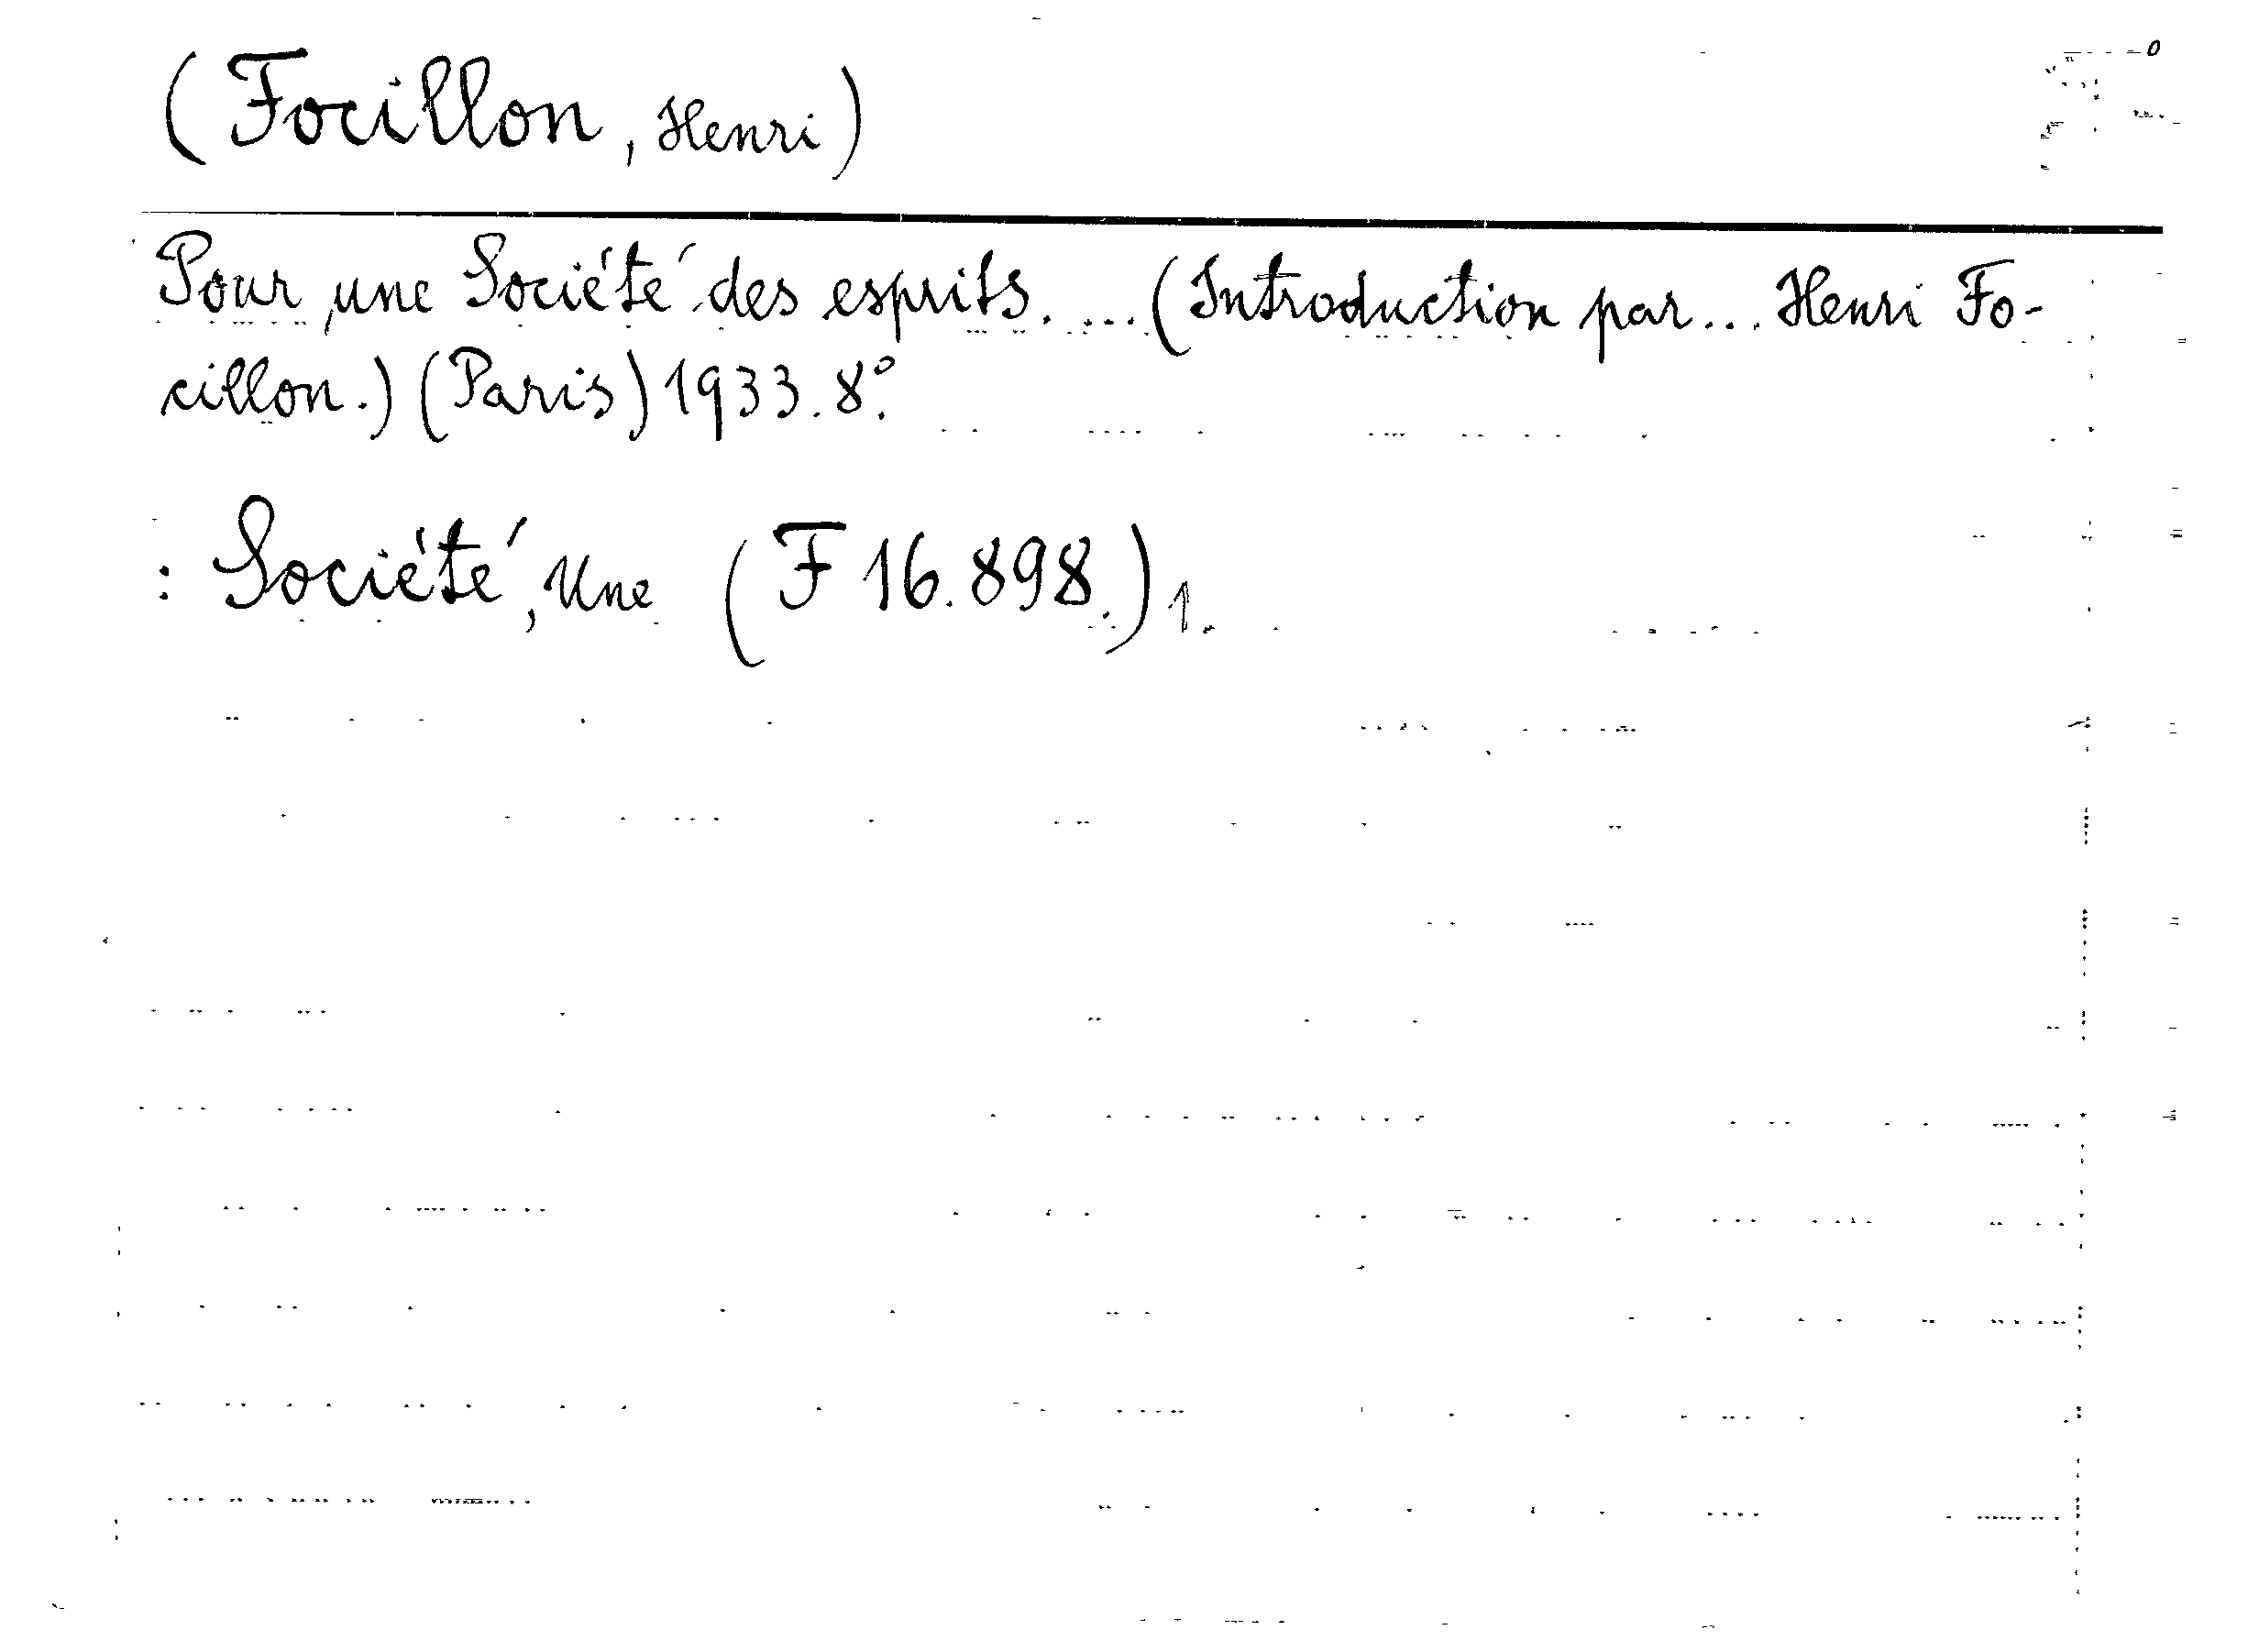 (Focillon, Henri)
Pour une Société des esprits. ... (Introduction par... Henri Fo-
cillon.) (Paris) 1933. 8°.
: Société, Une (F 16.898.) 1.